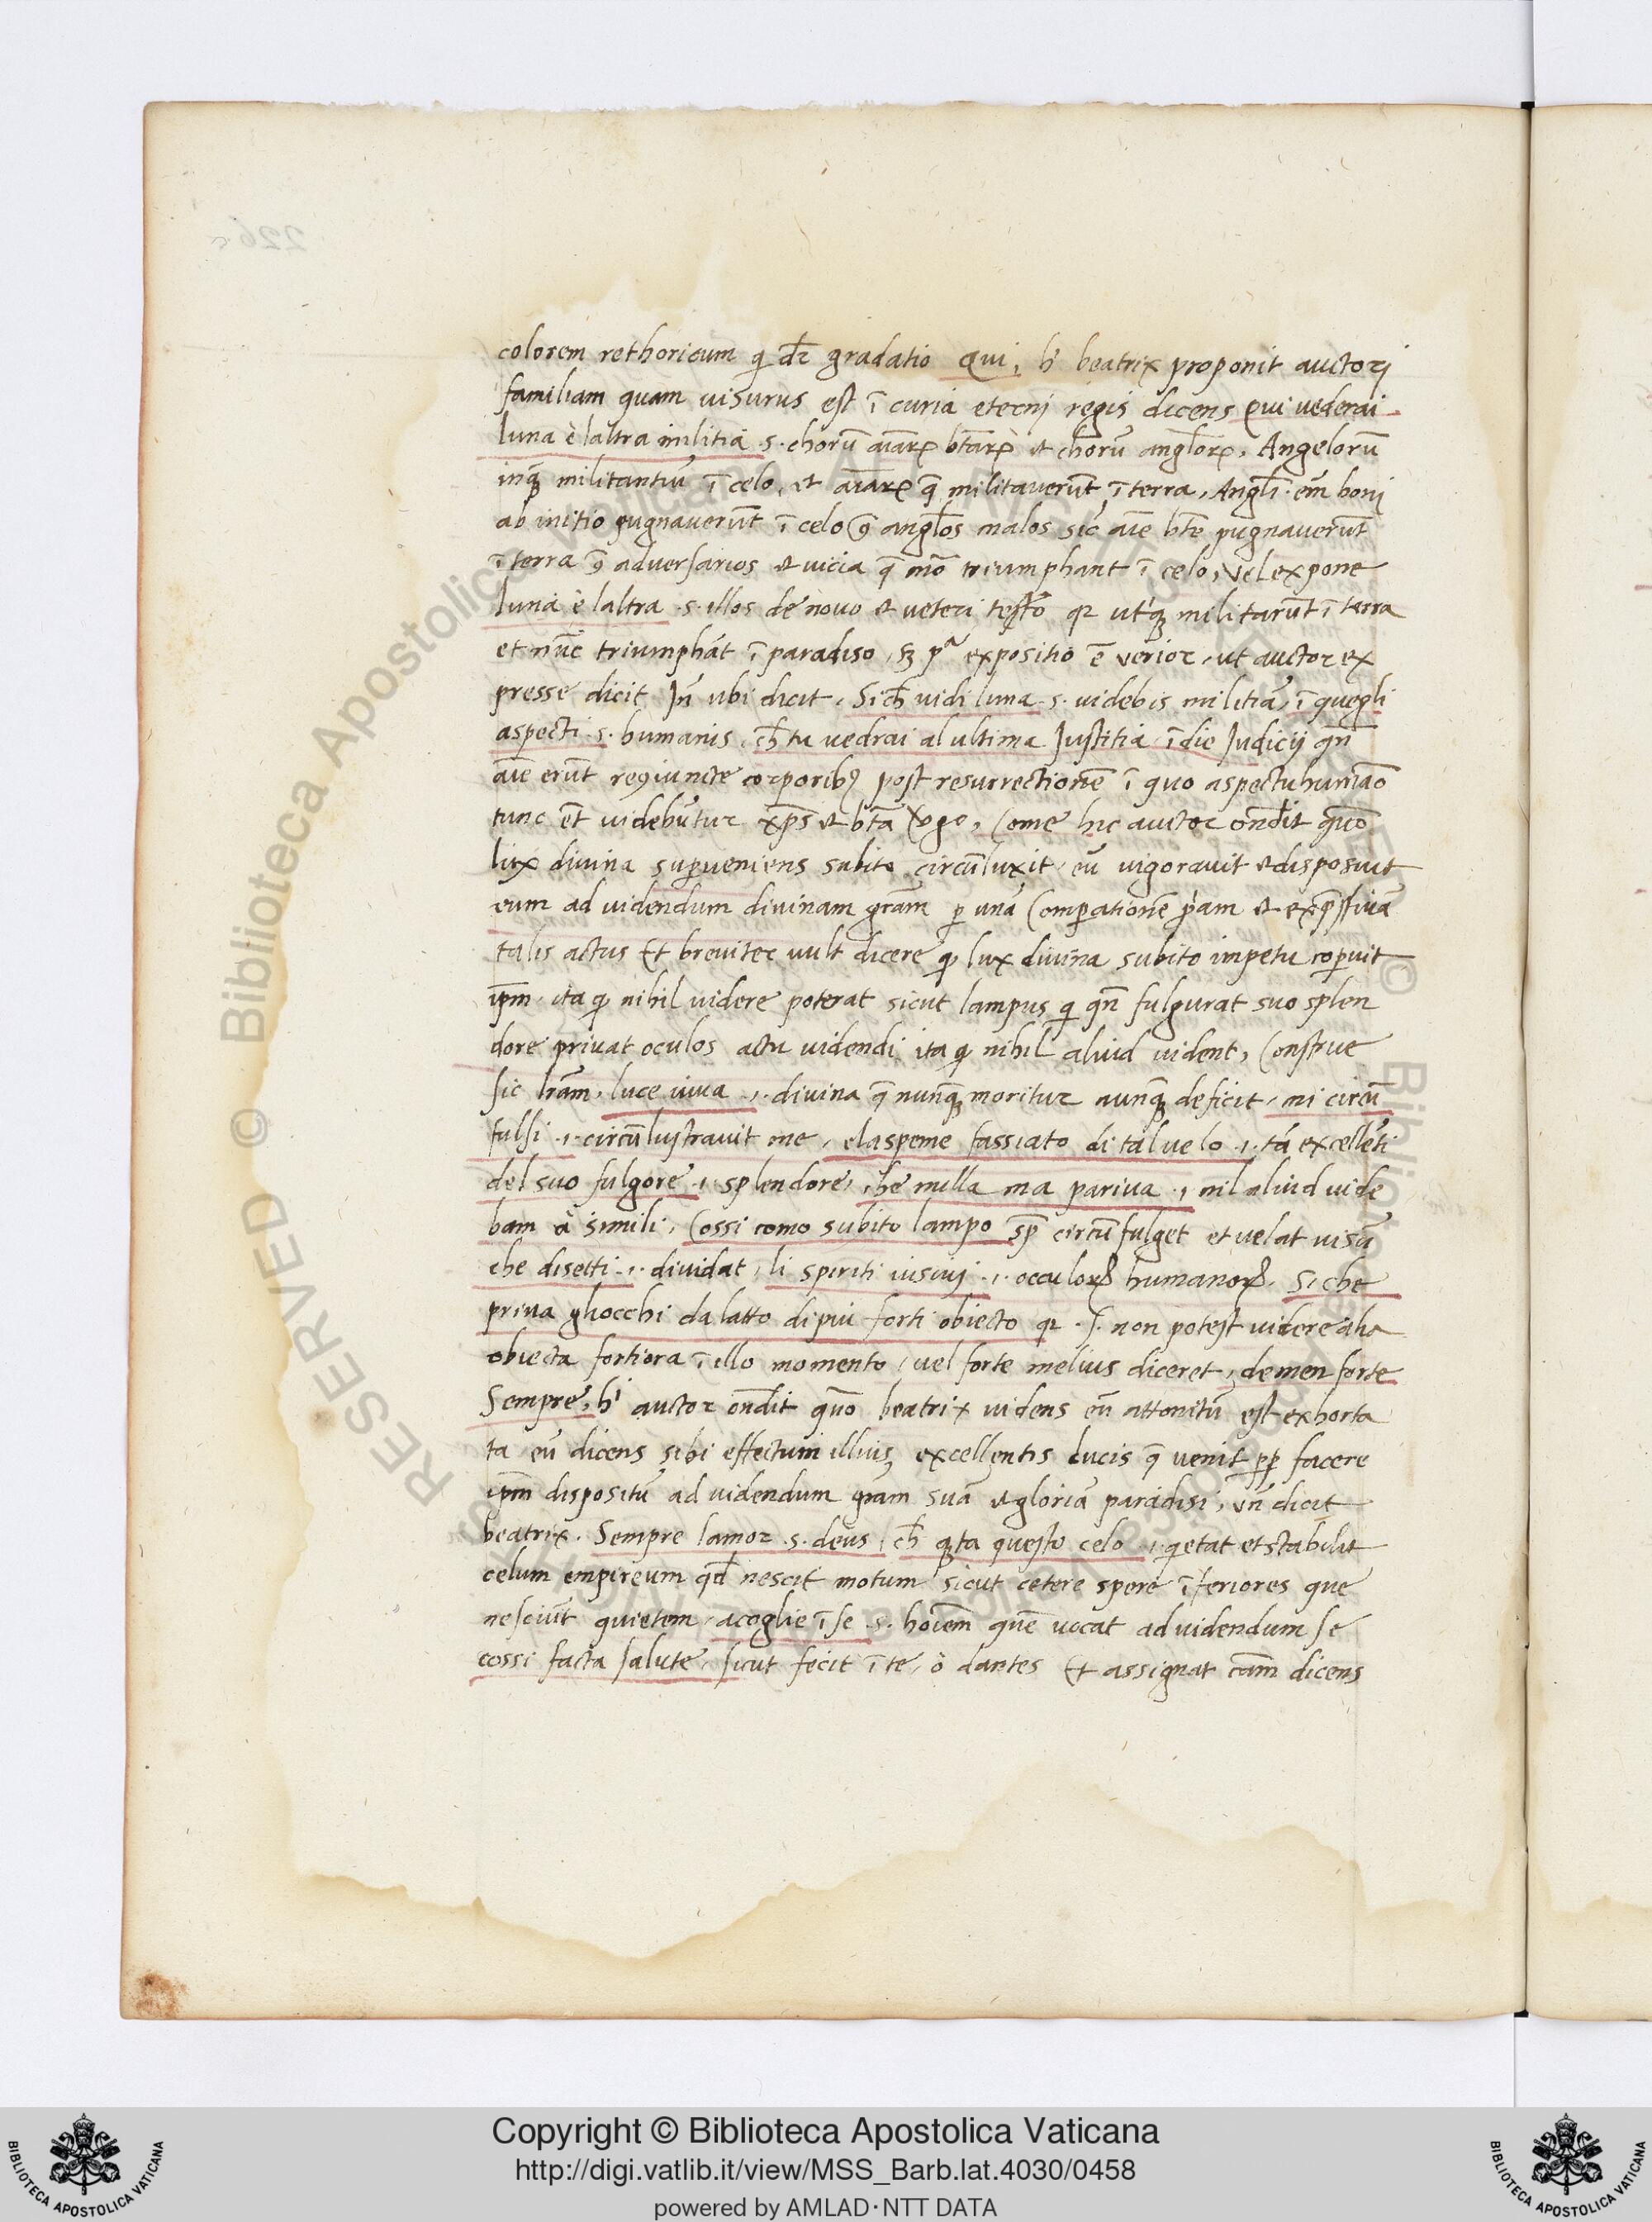 colorem rethoricum q̄ dr̄ gradatio Qui, hi beatrix proponit auctori
familiam quam uisurus est ī curia eterni regis dicens Qui uederai
luna è laltra militia .s. chorū aīarꝝ btārꝝ et chorū anglorꝝ, Angelorū
inqꝫ militantiū ī celo, et aīarꝝ q̄ militauerūt ī terra, Angli em̄ boni
ab initio pugnauerūt ī celo ꝯ anglos malos sic aīe bt̄e pugnauerūt
ī terra ꝯ aduersarios et uicia q̄ mō triumphant ī celo, Vel expone
luna è laltra .s. illos de nouo et ueteri testō qr utqꝫ militarūt ī terra
et nūc triumphāt ī paradiso, sꝫ pa expositio ē verior, ut auctor ex
presse dicit Iñ ubi dicit, Sich̄ uidi luna .s. uidebis militiā, ī quegli
aspecti .s. humanis, ch̄ tu uedrai al ultima Iustitia, ī die Iudicij qn̄
aīe erūt reꝯiuncte corporibꝰ post resurrectionē ī quo aspectu humāo
tunc ēt uidebūtur xp̄s et btā Vgo, Come hic auctor ondit quō
lux diuina superueniens subito circūluxit, eū uigorauit et disposuit
eum ad uidendum diuinam gram̄ p unā Comperationē p̄am et exp̄ssiuā
talis actus Et breuiter uult dicere qͥ lux diuina subito impetu copuit
ipm̄ ita qͥ nihil uidere poterat sicut lampus qͥ qn̄ fulgurat suo splen
dore priuat oculos actu uidendi ita qͥ nihil aliud uident, Construe
sic lr̄am, luce uiua .i. diuina q̄ nunqꝫ moritur nunqꝫ deficit, mi circū
fulsi .i. circūlustrauit me, elaspeme fassiato di tal uelo .i. tā excellēti
del suo fulgore .i. splendore, che nulla ma pariua .i. nil aliud uide
bam à simili, Cossi como subito lampo sp̄ circūfulget et uelat uisū
che disetti .i. diuidat, li spiriti uisiui .i. occulorꝝ humanorꝝ. Si che
priua gliocchi da latto di piu forti obiecto qr .s. non potest uidere alia
obiecta fortiora ī illo momento, uel forte melius diceret, demen forte
Sempre, hi auctor ondit quō beatrix uidens eū attonitū est exhorta
ta eū dicens sibi effectum illius excellentis lucis q̄ uenit pp facere
ipm̄ dispositū ad uidendum gram̄ suā et gloriā paradisi, vn̄ dicit
beatrix. Sempre lamor .s. deus, ch̄ qͥta questo celo .i. qͥetat et stabilit
celum empireum qd̄ nescit motum sicut cetere spere īferiores que
nesciūt quietem, acoglie ī se .s. hoīem quē uocat ad uidendum se
cossi facta salute, sicut fecit ī te, ò dantes Et assignat cām dicens
Copyright © Biblioteca Apostolica Vaticana
http://digi.vatlib.it/view/MSS_Barb.lat.4030/0458
powered by AMLAD·NTT DATA